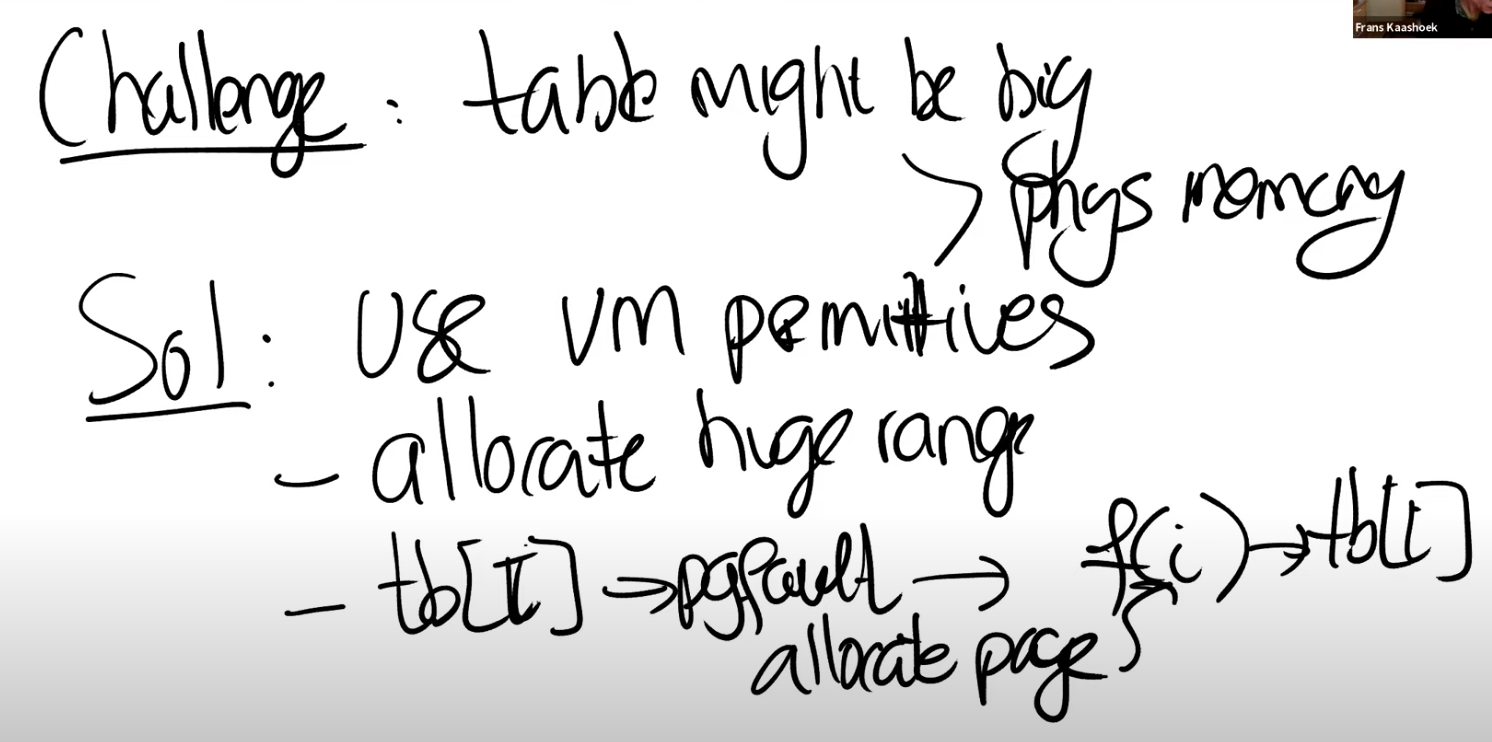 Frans Kaashoek
Challenge: table might be big
> phys memory
Sol: use VM pemittives
- allocate huge range
- tb[i] → pgfault → f(i) → tb[i]
allocate page